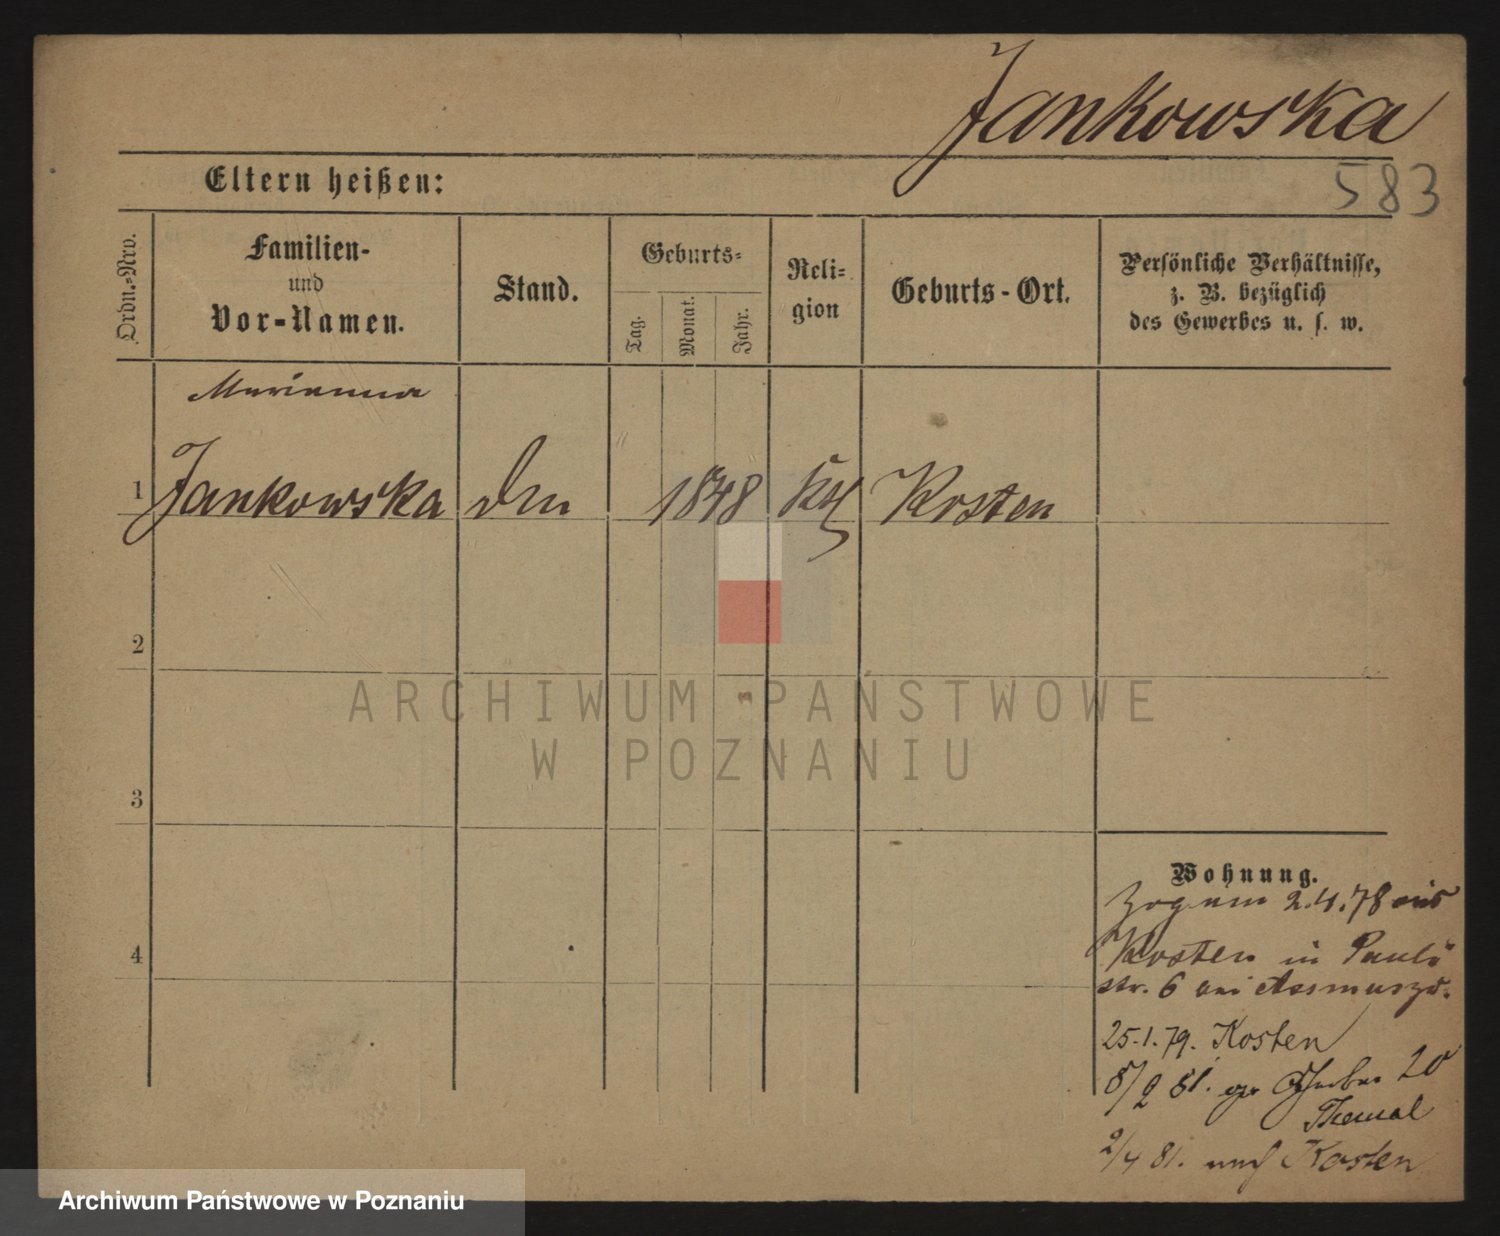 Jankowska
583
Eltern heißen:
Ordn.-Nro.
Familien-
und
Vor-Namen.
Stand.
Geburts-
Tag.
Monat.
Jahr.
Reli-
gion
Geburts-Ort.
Persönliche Verhältnisse,
z. B. bezüglich
des Gewerbes u. s. w.
Marianna
1 Jankowska 1848 Kth Kosten
2
3
4
ARCHIWUM PAŃSTWOWE
W POZNANIU
Wohnung.
Zog am 2.4.78 aus
Kosten in Pauli
str. 6 bei
25.1.79. Kosten
8/2 81. gr Gerber 20
2/4 81. nach Kosten
Archiwum Państwowe w Poznaniu